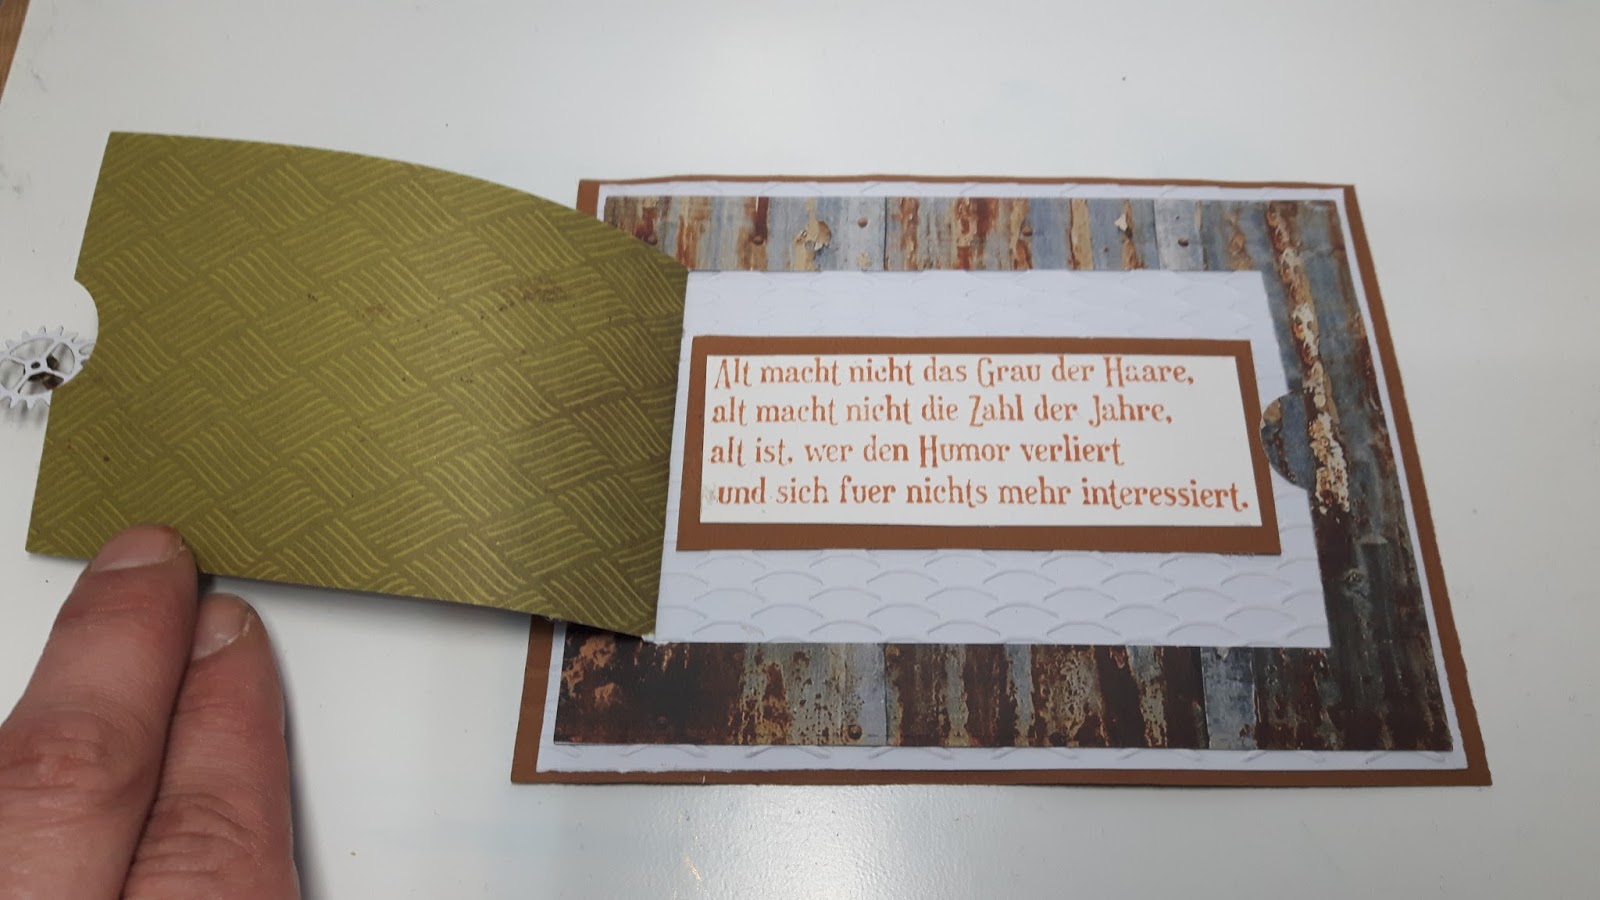 Alt macht nicht das Grau der Haare,
alt macht nicht die Zahl der Jahre,
alt ist, wer den Humor verliert
und sich fuer nichts mehr interessiert.